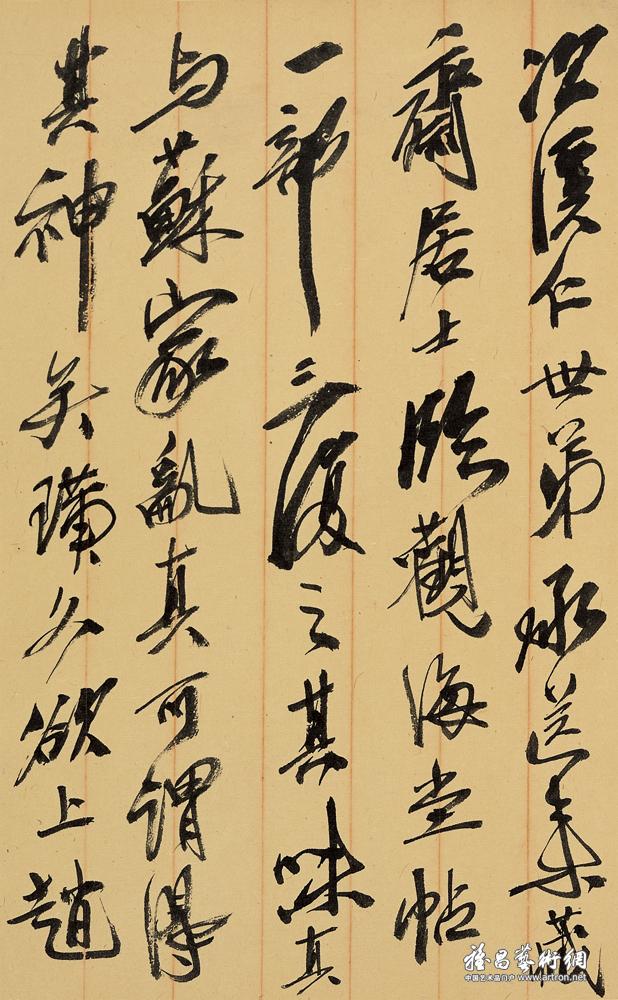 次溪仁世弟承送来藏
齋居士臨觀海堂帖
一部三復之其味真
与蘇家亂真可謂得
其神矣璜久欲上趙
雅昌藝術網
中国艺术品门户 www.artron.net